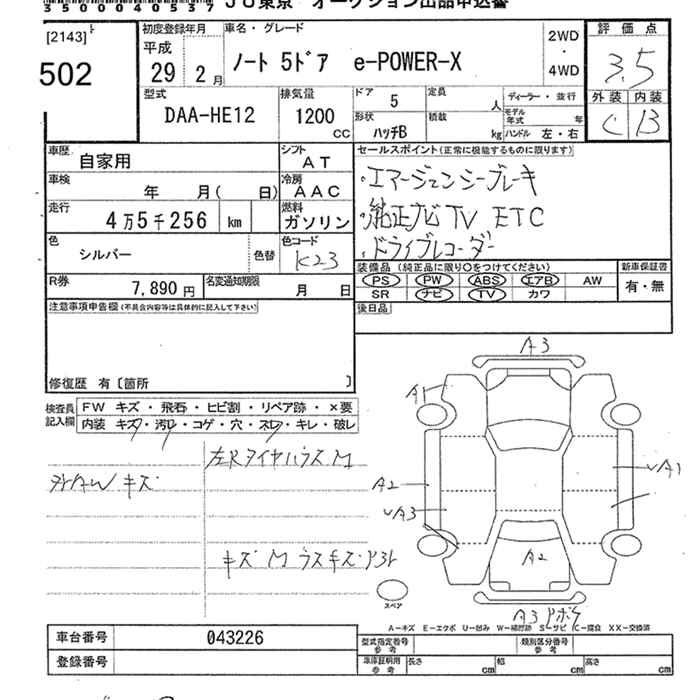 350040040537 JU東京 オークション出品申込書
[2143]
502
初度登録年月
平成
29年 2月
車名・グレード
ノート 5ドア e-POWER-X
2WD
・
4WD
評価点
3.5
外装 内装
C B
型式
DAA-HE12
排気量
1200
CC
ドア
5
形状
ハッチB
定員
人
積載
kg
ディーラー・並行
モデル年式 年
ハンドル 左・右
車歴
自家用
シフト
AT
車検
年 月( 日)
冷房
AAC
走行
4万5千256 km
燃料
ガソリン
色
シルバー
色替
色コード
K23
R券
7,890円
名変通知期限
月 日
セールスポイント(正常に機能するものに限ります)
・エマージェンシーブレーキ
・純正ナビ TV ETC
・ドライブレコーダー
装備品(純正品に限り○をつけてください)
PS PW ABS エアB AW
SR ナビ TV カワ
新車保証書
有・無
後日品
注意事項申告欄(不具合内容等は具体的に記入して下さい)
修復歴 有〔箇所 〕
検査員
記入欄
FW キズ・飛石・ヒビ割・リペア跡・×要
内装 キズ・汚レ・コゲ・穴・スレ・キレ・破レ
左Rタイヤハウス M
キズ
キズ M
A3
A1
A2
A3
A1
A2
A3
スペア
A-キズ E-エクボ U-凹み W-補修跡 S-サビ C-腐食 XX-交換済
車台番号
043226
登録番号
型式指定番号
参考
類別区分番号
参考
車庫証明用
参考
長さ cm
幅 cm
高さ cm